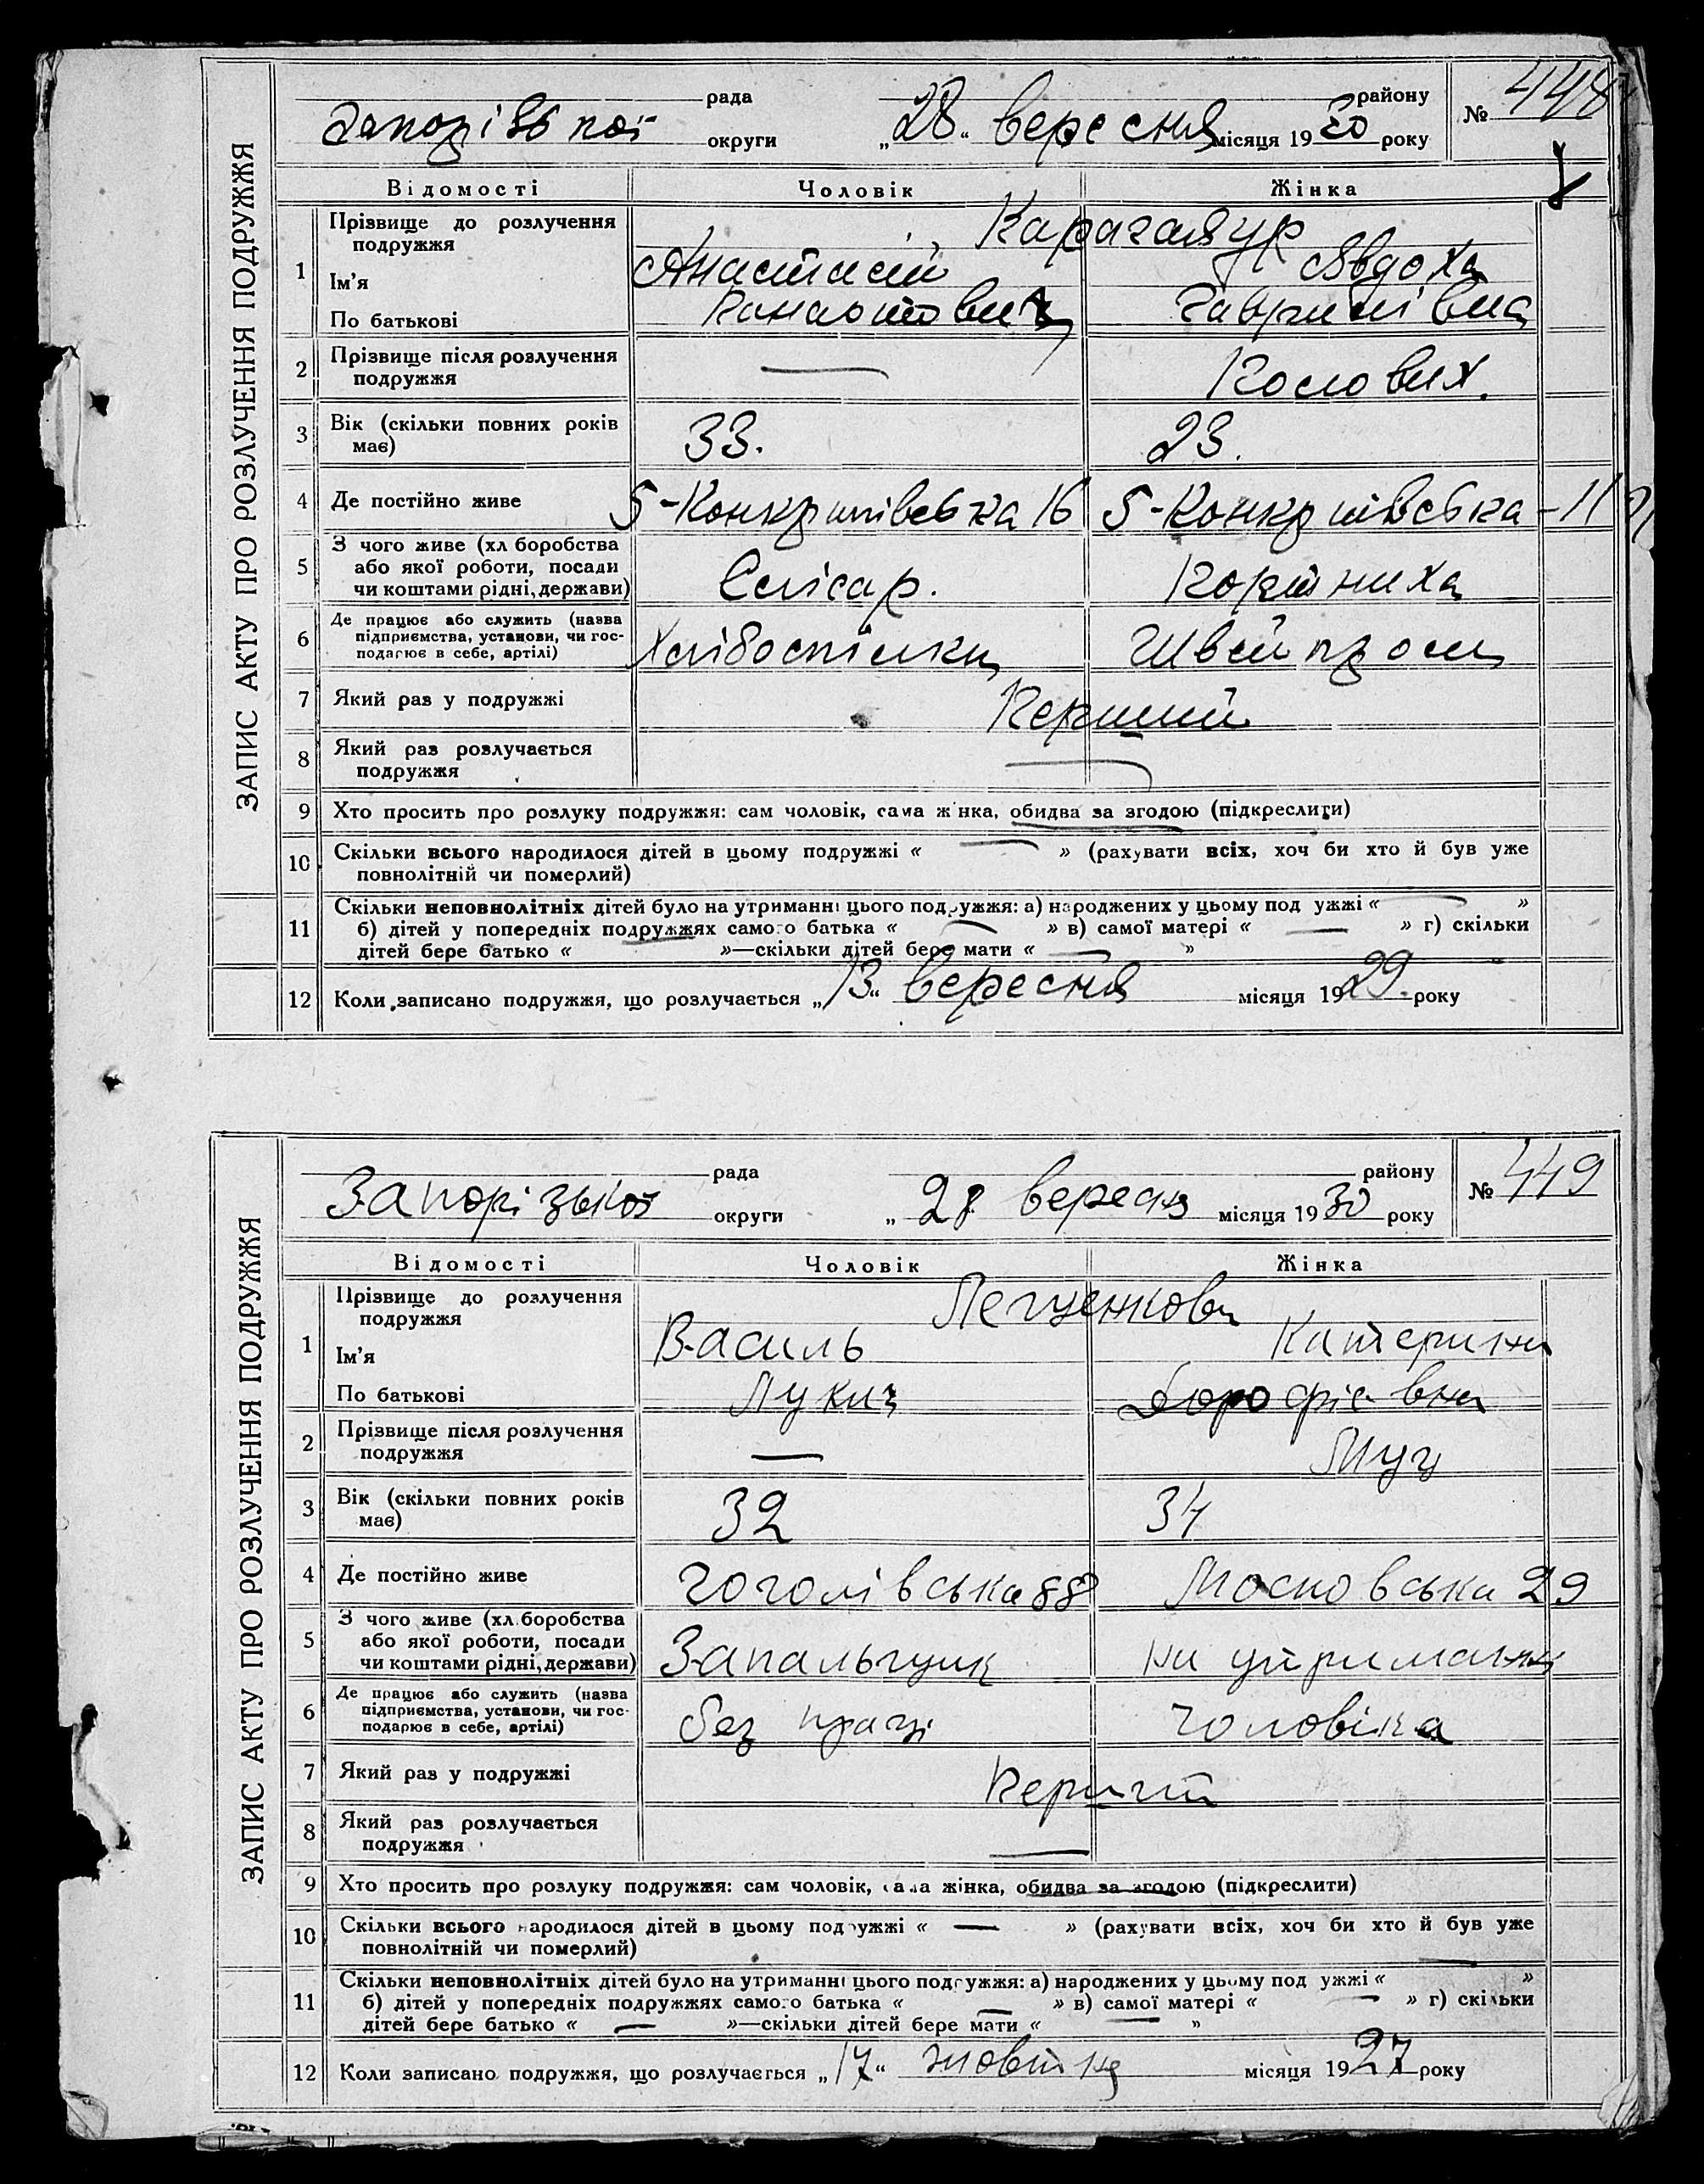 ЗАПИС АКТУ ПРО РОЗЛУЧЕННЯ ПОДРУЖЖЯ
рада району № 448
округи „28“ вересня місяця 1930 року
Відомості Чоловік Жінка
1 Прізвище до розлучення подружжя
Ім’я Анастасій Явдоха
По батькові Гаврилівна
2 Прізвище після розлучення подружжя —
3 Вік (скільки повних років має) 33. 23.
4 Де постійно живе 16 11
5 З чого живе (хл боробства
або якої роботи, посади
чи коштами рідні, держави)
Слюсар.
6 Де працює або служить (назва
підприємства, установи, чи гос-
подарює в себе, артілі)
Хлібоспілка Швейпром
7 Який раз у подружжі Перший
8 Який раз розлучається
подружжя —
9 Хто просить про розлуку подружжя: сам чоловік, сама жінка, обидва за згодою (підкреслити)
10 Скільки всього народилося дітей в цьому подружжі « — » (рахувати всіх, хоч би хто й був уже
повнолітній чи померлий)
11 Скільки неповнолітніх дітей було на утриманні цього подружжя: а) народжених у цьому подружжі « — »
б) дітей у попередніх подружжях самого батька « — » в) самої матері « — » г) скільки
дітей бере батько « »—скільки дітей бере мати « — »
12 Коли записано подружжя, що розлучається „13“ вересня місяця 1929. року
ЗАПИС АКТУ ПРО РОЗЛУЧЕННЯ ПОДРУЖЖЯ
рада району № 449
Запорізької округи „28 вересня місяця 1930 року
Відомості Чоловік Жінка
1 Прізвище до розлучення
подружжя
Ім’я Василь Катерина
По батькові Лукич Дорофієвна
2 Прізвище після розлучення
подружжя —
3 Вік (скільки повних років
має) 32 34
4 Де постійно живе Гоголівська 88 Московська 29
5 З чого живе (хл.боробства
або якої роботи, посади
чи коштами рідні, держави)
Запальщик на утриманні
6 Де працює або служить (назва
підприємства, установи, чи гос-
подарює в себе, артілі)
без праці чоловіка
7 Який раз у подружжі Перший
8 Який раз розлучається
подружжя —
9 Хто просить про розлуку подружжя: сам чоловік, сама жінка, обидва за згодою (підкреслити)
10 Скільки всього народилося дітей в цьому подружжі « — » (рахувати всіх, хоч би хто й був уже
повнолітній чи померлий)
11 Скільки неповнолітніх дітей було на утриманні цього подружжя: а) народжених у цьому подружжі « — »
б) дітей у попередніх подружжях самого батька « — » в) самої матері « — » г) скільки
дітей бере батько « — »—скільки дітей бере мати « — »
12 Коли записано подружжя, що розлучається „17“ жовтня місяця 1927 року